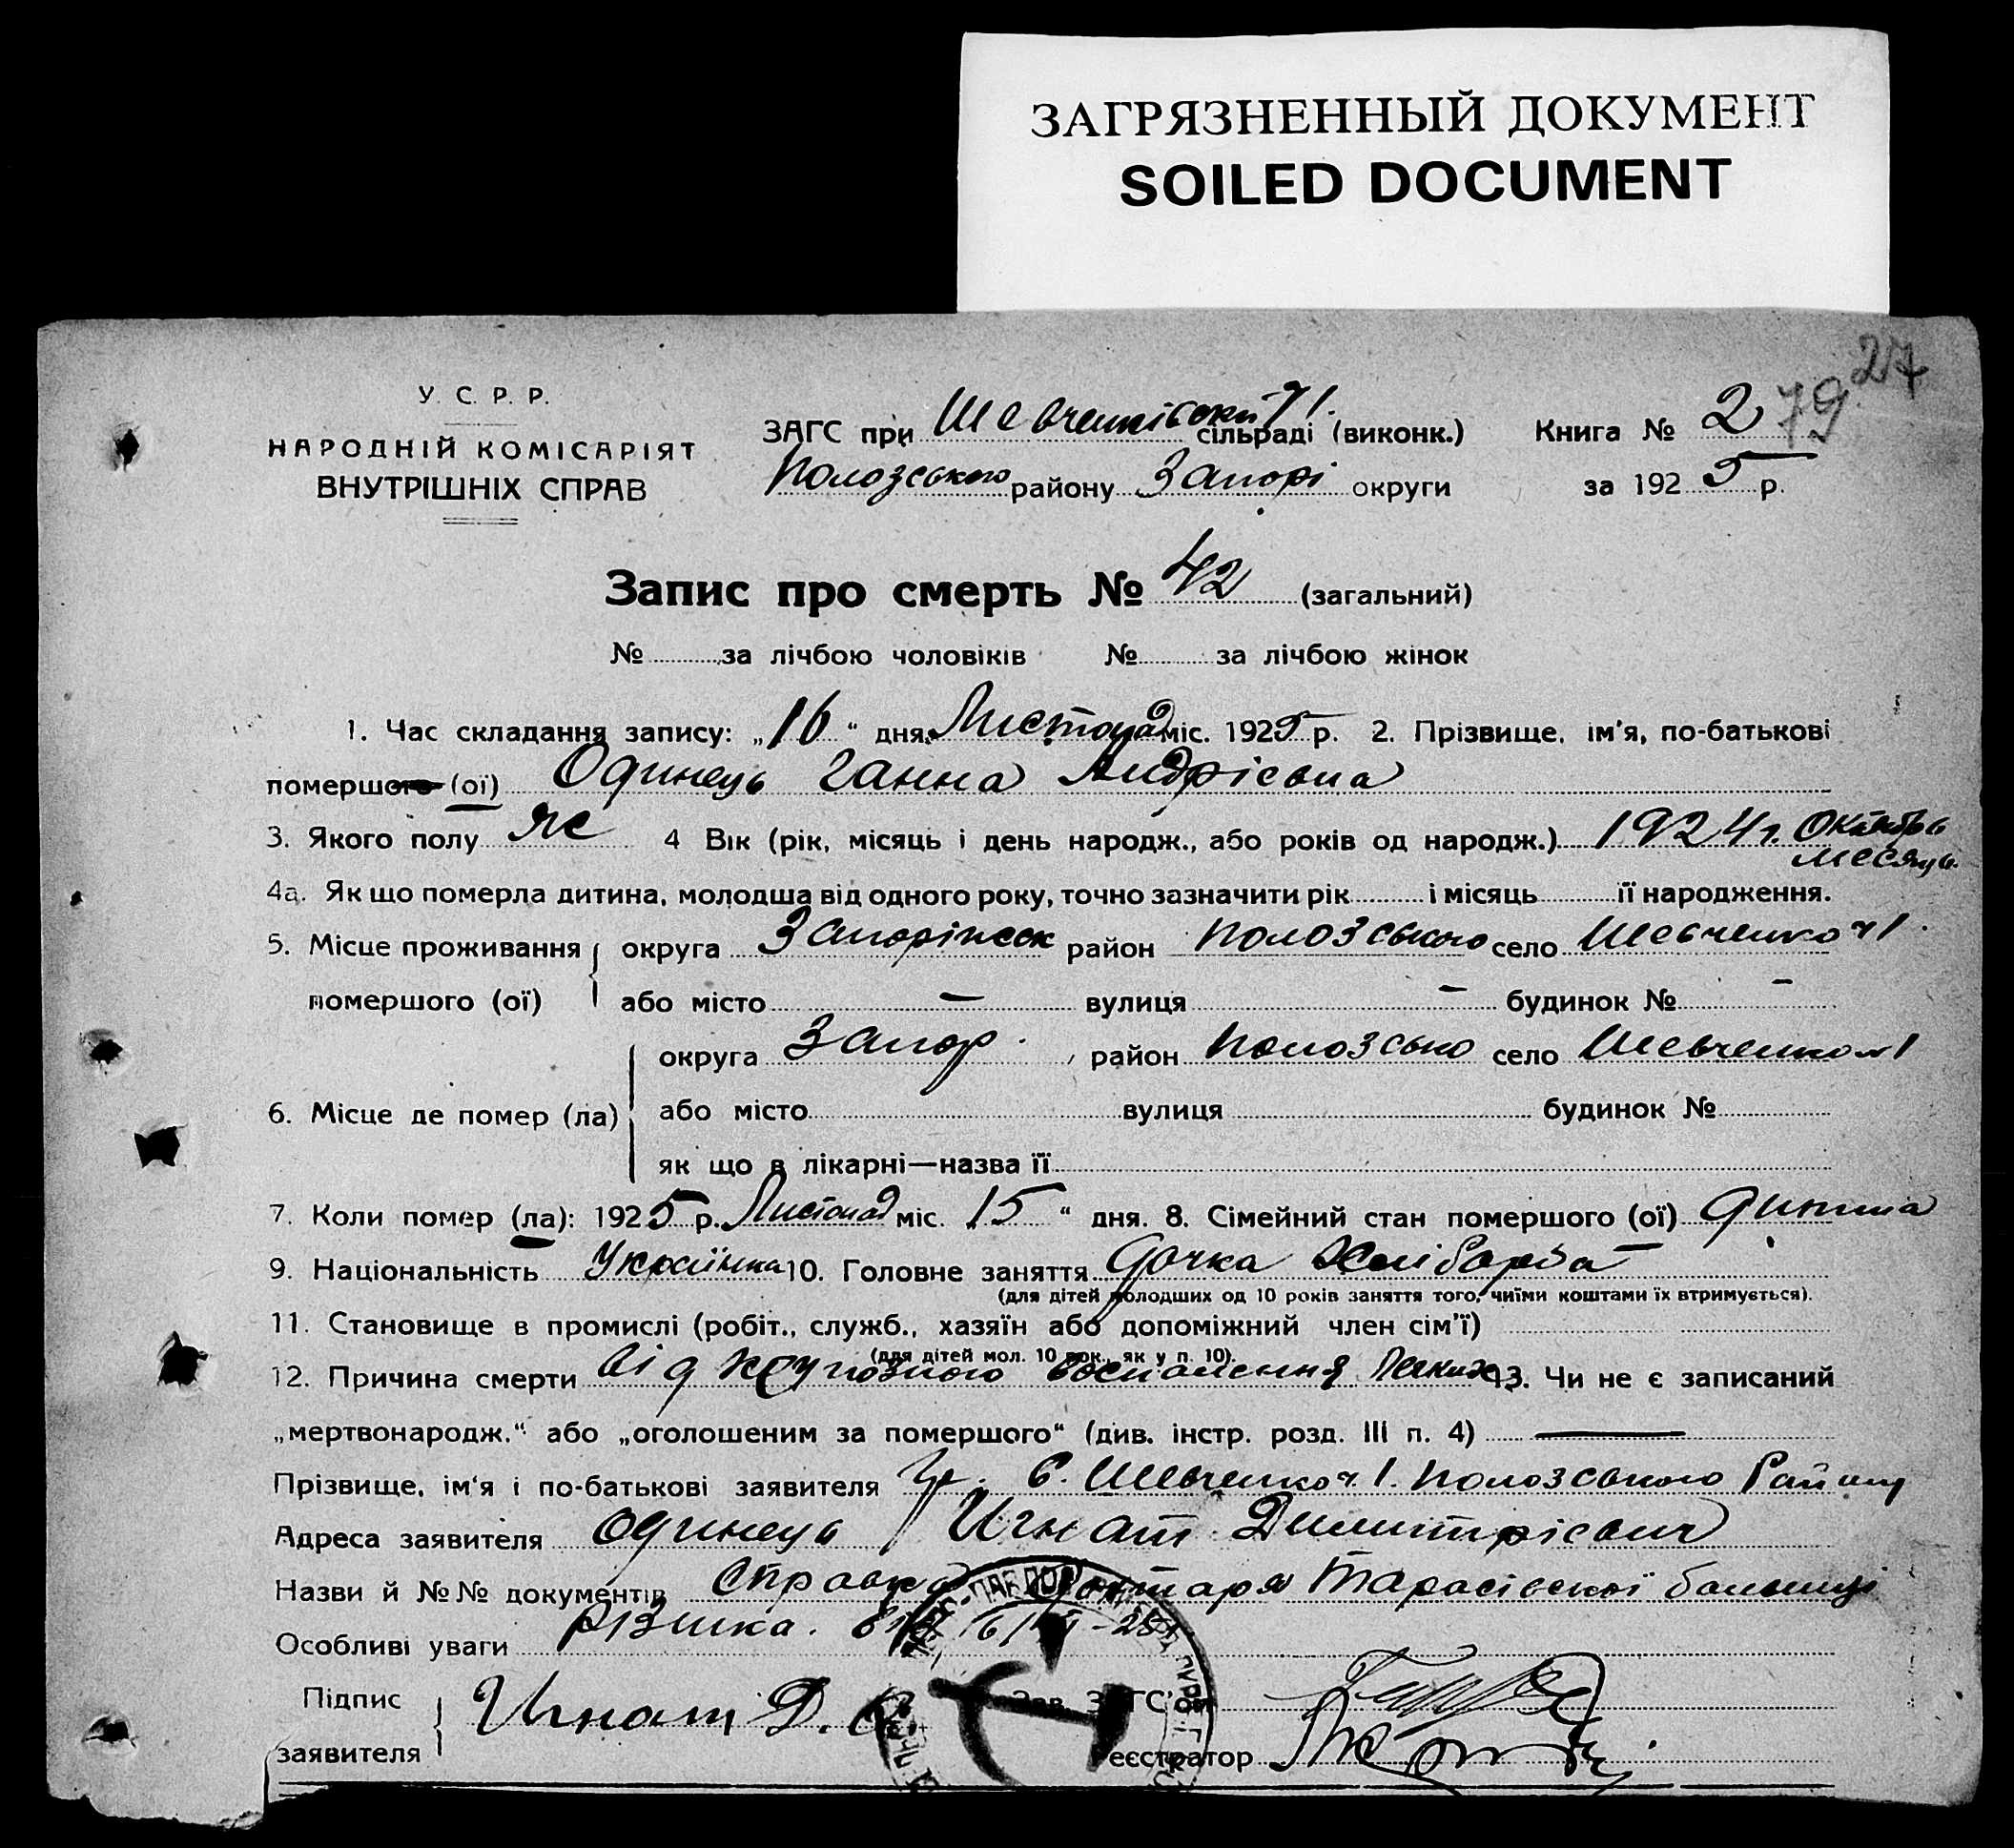 ЗАГРЯЗНЕННЫЙ ДОКУМЕНТ
SOILED DOCUMENT
27
79
У. С. Р. Р.
НАРОДНІЙ КОМІСАРІЯТ
ВНУТРІШНІХ СПРАВ
ЗАГС при Шевченківській №1. сільраді (виконк.)
Полозського району Запорі округи
Книга № 2
за 1925 р.
Запис про смерть № 42 (загальний)
№ за лічбою чоловіків № за лічбою жінок
1. Час складання запису: „16" дня Листопад міс. 1925 р. 2. Прізвище, ім'я, по-батькові
помершого (ої) Одинець Ганна Андрієвна
3. Якого полу же 4 Вік (рік, місяць і день народж., або років од народж.) 1924 г. Октября
месяца.
4а. Як що померла дитина, молодша від одного року, точно зазначити рік і місяць її народження.
5. Місце проживання округа Запоріжск район Полозського село Шевченко №1.
помершого (ої) або місто — вулиця — будинок № —
округа Запор. район Полозсько село Шевченко №1
6. Місце де помер (ла) або місто вулиця будинок №
як що в лікарні—назва її
7. Коли помер (ла): 1925 р. Листопад міс. 15 " дня. 8. Сімейний стан помершого (ої) дитина
9. Національність Українка 10. Головне заняття дочка Хлібороба
(для дітей молодших од 10 років заняття того, чиїми коштами їх втримується).
11. Становище в промислі (робіт., служб., хазяїн або допоміжний член сім'ї)
(для дітей мол. 10 рок., як у п. 10).
12. Причина смерти від крупозного воспаления легких 13. Чи не є записаний
„мертвонародж." або „оголошеним за помершого" (див. інстр. розд. III п. 4) —
Прізвище, ім'я і по-батькові заявителя Гр. С. Шевченко №1. Полозського Району
Адреса заявителя Одинець Игнат Димитрієвич
Назви й №№ документів Справка Тарасівської больниці
Особливі уваги
Підпис
заявителя Игнат Д. О.
Зав. ЗАГС'ом
Реєстратор